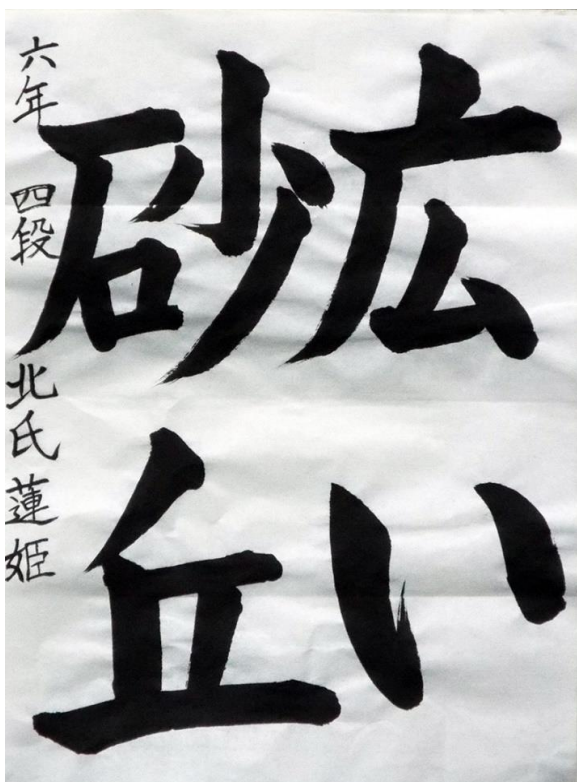 広い
砂丘
六年 四段 北氏蓮姫